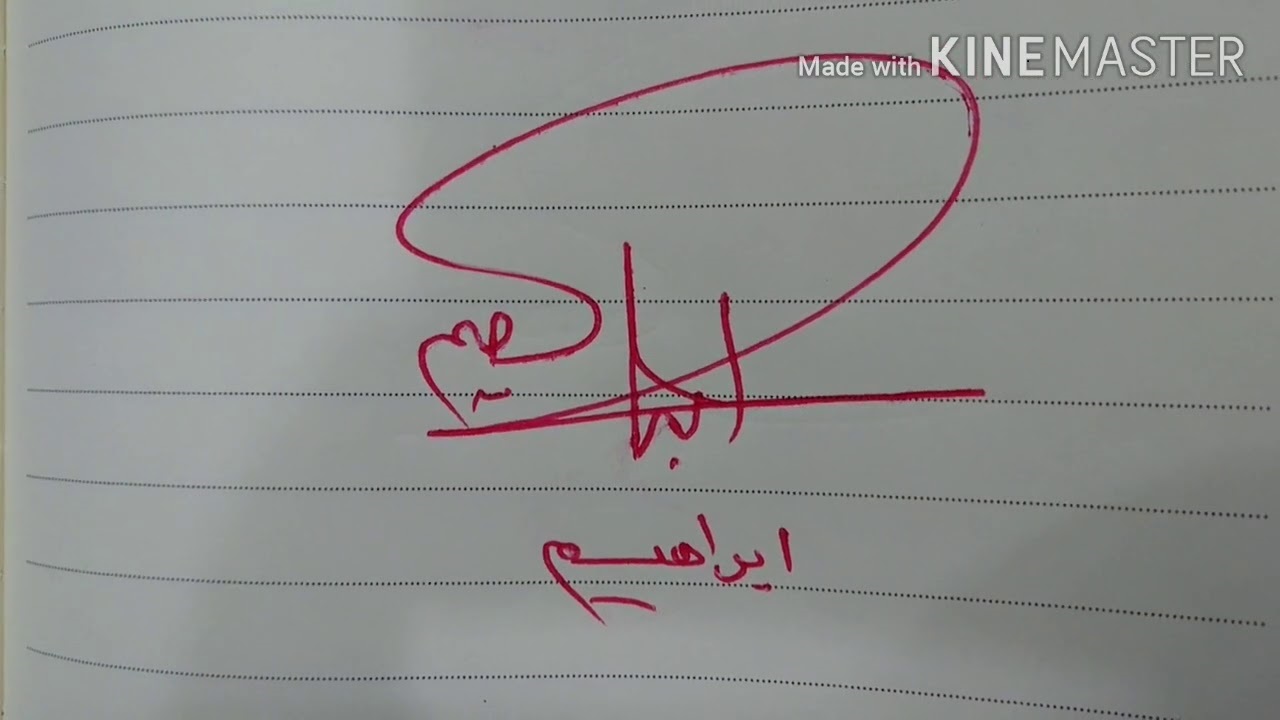 Made with KINEMASTER
ابراهيم
ابراهيم